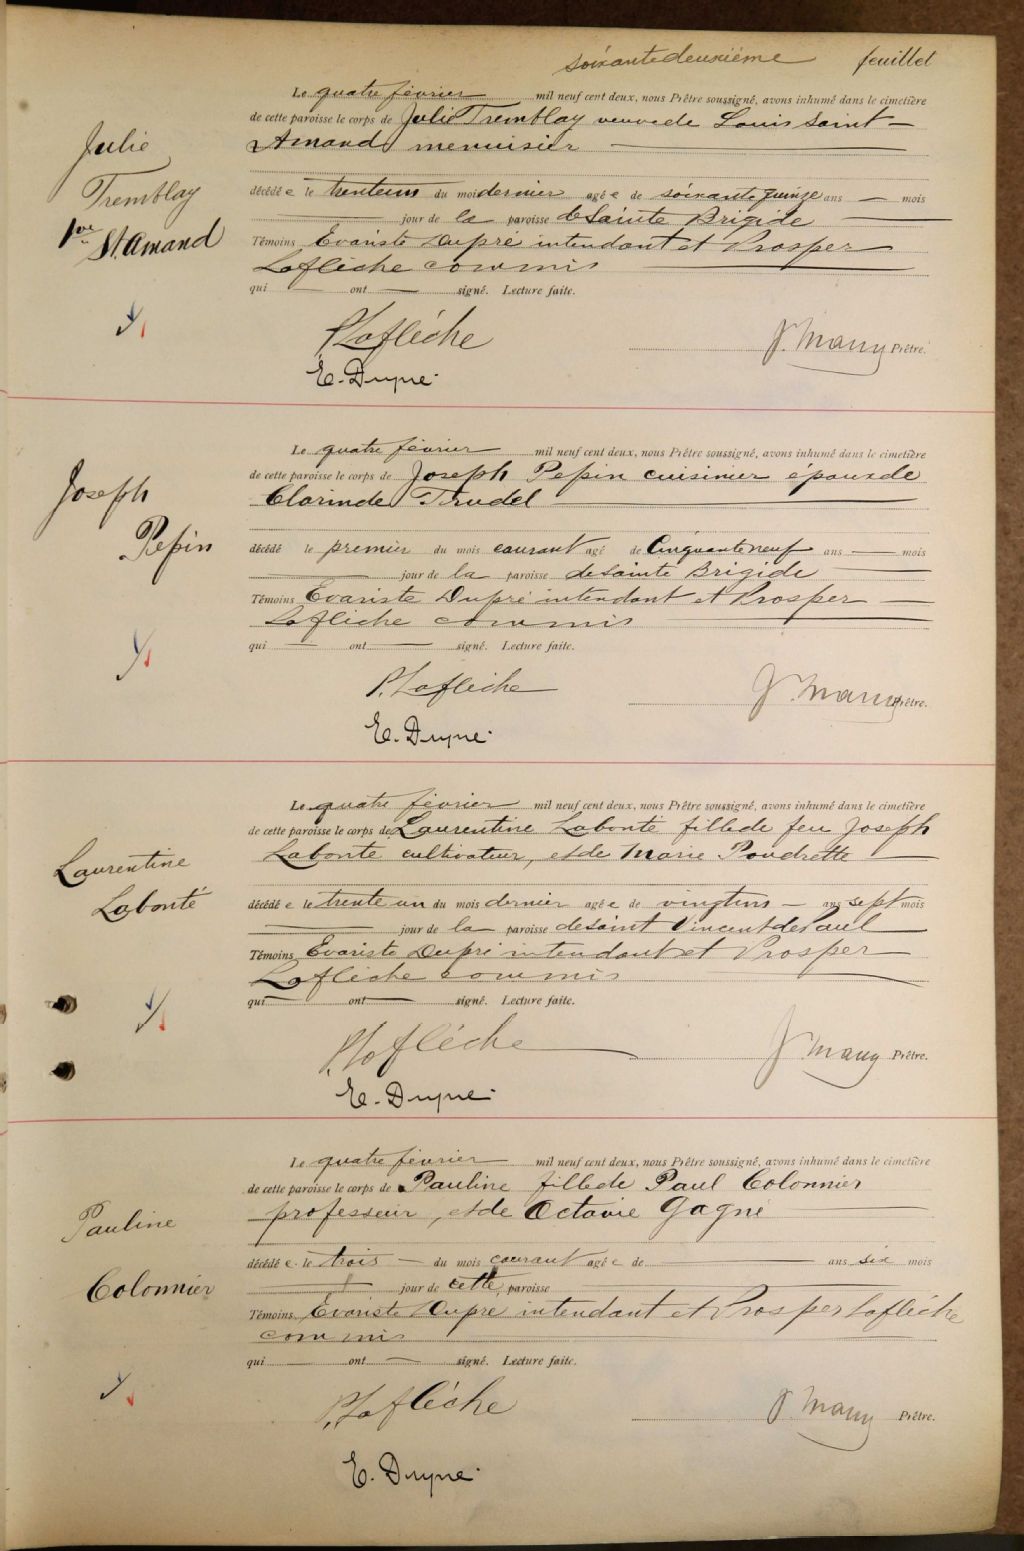 soixante deuxième feuillet
Le quatre février mil neuf cent deux, nous Prêtre soussigné, avons inhumé dans le cimetière
de cette paroisse le corps de Julie Tremblay veuve de Louis Saint-
Amand menuisier
Julie
Tremblay
Vve
St. Amand
décédée le trente un du mois dernier agée de soixante quinze ans — mois
jour de la paroisse de Sainte Brigide
Témoins Evariste Dupré intendant et Prosper
Laflèche commis
qui — ont — signé. Lecture faite.
P. Laflèche
J. Many Prêtre.
E. Dupré
Le quatre février mil neuf cent deux, nous Prêtre soussigné, avons inhumé dans le cimetière
de cette paroisse le corps de Joseph Pepin cuisinier époux de
Clorinde Trudel
Joseph
Pepin
décédé le premier du mois courant agé de Cinquante neuf ans — mois
jour de la paroisse de Sainte Brigide
Témoins Evariste Dupré intendant et Prosper
Laflèche commis
qui — ont — signé. Lecture faite.
P. Laflèche
J. Many Prêtre.
E. Dupré
Le quatre février mil neuf cent deux, nous Prêtre soussigné, avons inhumé dans le cimetière
de cette paroisse le corps de Laurentine Labonté fille de feu Joseph
Labonté cultivateur, et de Marie Poudrette
Laurentine
Labonté
décédée le trente un du mois dernier agée de vingt un — ans sept mois
jour de la paroisse de Saint Vincent de Paul
Témoins Evariste Dupré intendant et Prosper
Laflèche commis
qui — ont — signé. Lecture faite.
P. Laflèche
J. Many Prêtre.
E. Dupré
Le quatre février mil neuf cent deux, nous Prêtre soussigné, avons inhumé dans le cimetière
de cette paroisse le corps de Pauline fille de Paul Colonnier
professeur, et de Octavie Gagne
Pauline
Colonnier
décédée le trois — du mois courant agée de — ans six mois
jour de cette paroisse
Témoins Evariste Dupré intendant et Prosper Laflèche
commis
qui — ont — signé. Lecture faite.
P. Laflèche
J. Many Prêtre.
E. Dupré